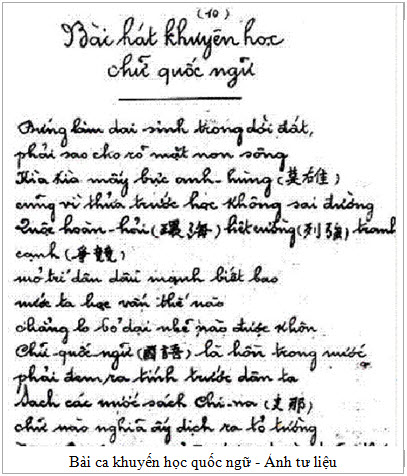 (10)
Bài hát khuyên học
chữ quốc ngữ
Đứng làm dai sinh trong dời đất,
phải sao cho rõ mặt non sông
Kìa kìa mấy bực anh-hùng (英雄)
cũng vì thửa trước học không sai đường
Cuộc hoàn-hải (環海) liệt cường (列強) tranh
cạnh (爭競)
mở trí dân dầu mạnh biết bao
nước ta học vấn thế nào
chẳng lo bỏ dại nhẽ nào được khôn
Chữ quốc ngữ (國語) là hồn trong nước
phải đem ra tính trước dân ta
Sách các nước sách Chi-na (支那)
chữ nào nghĩa ấy dịch ra tỏ tường
Bài ca khuyến học quốc ngữ - Ảnh tư liệu